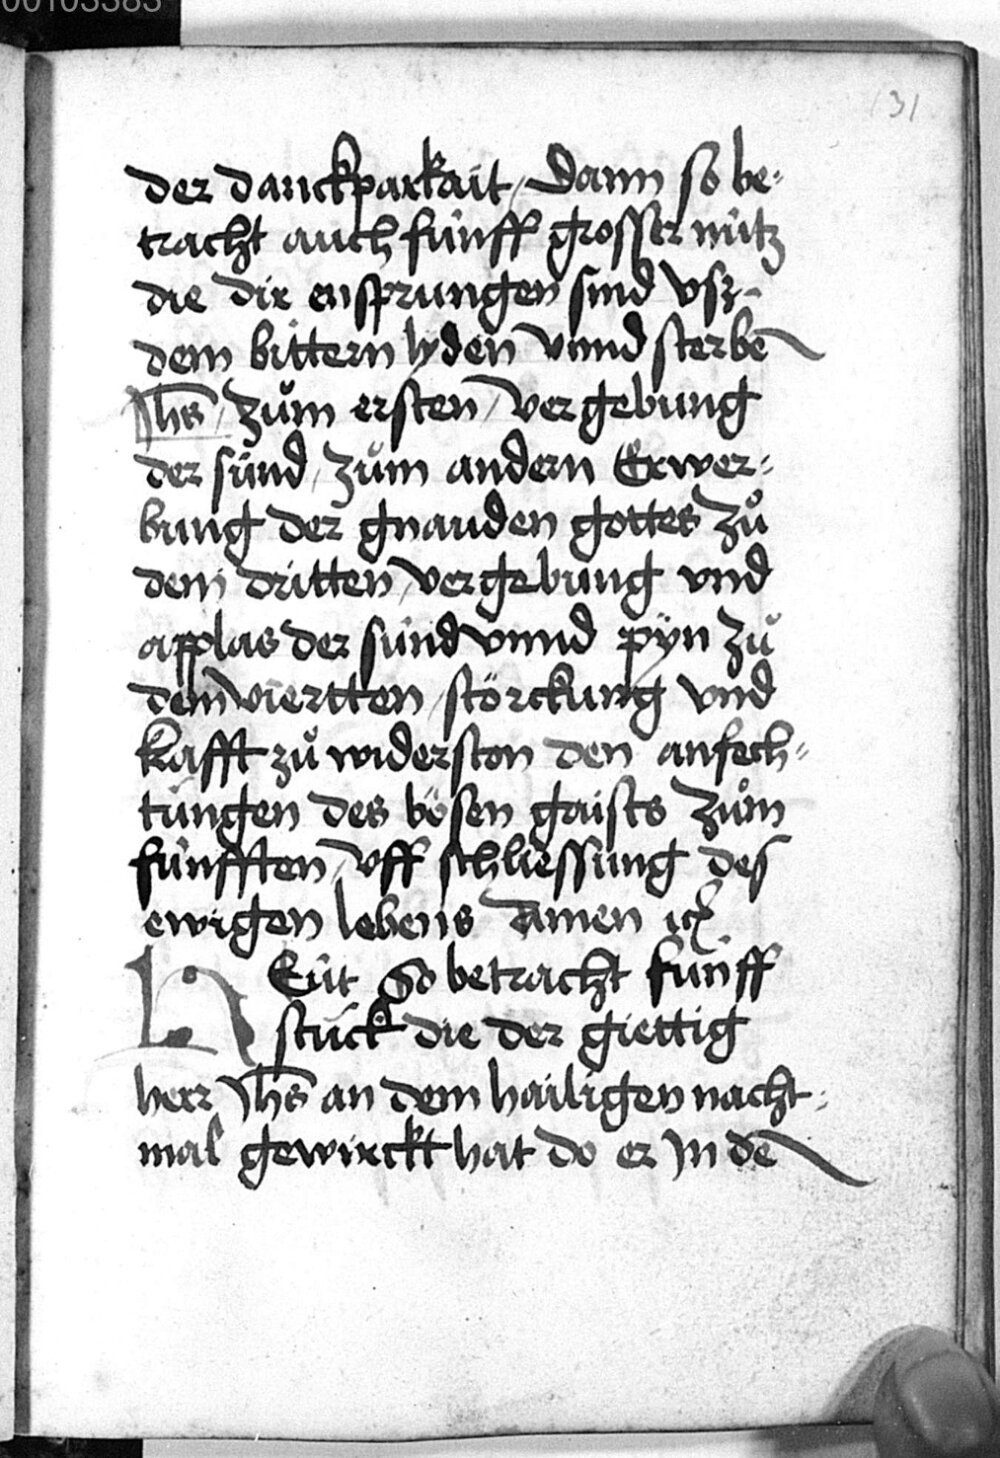 00103383
131
der danckparkait / Dann so be-
tracht auch fünff grosser nütz
die dir ensprungen sind vsz
dem bittern lyden vnnd sterbē
Jhs̄ / zům ersten / vergebung
der sünd / zům andern Erwer-
bung der gnauden gottes Zů
dem dritten / vergebung vnd
applas der sünd vnnd pÿn Zů
dem viertten / störckung vnd
kafft zů widerston den anfech-
tungen des bösen gaists Zům
fünfften / vff schliessung des
ewigen lebens Amen
HEüt So betracht fünff
stuck die der giettig
herr Jhs̄ an dem hailigen nacht-
mal gewirckt hat do er Jn dē